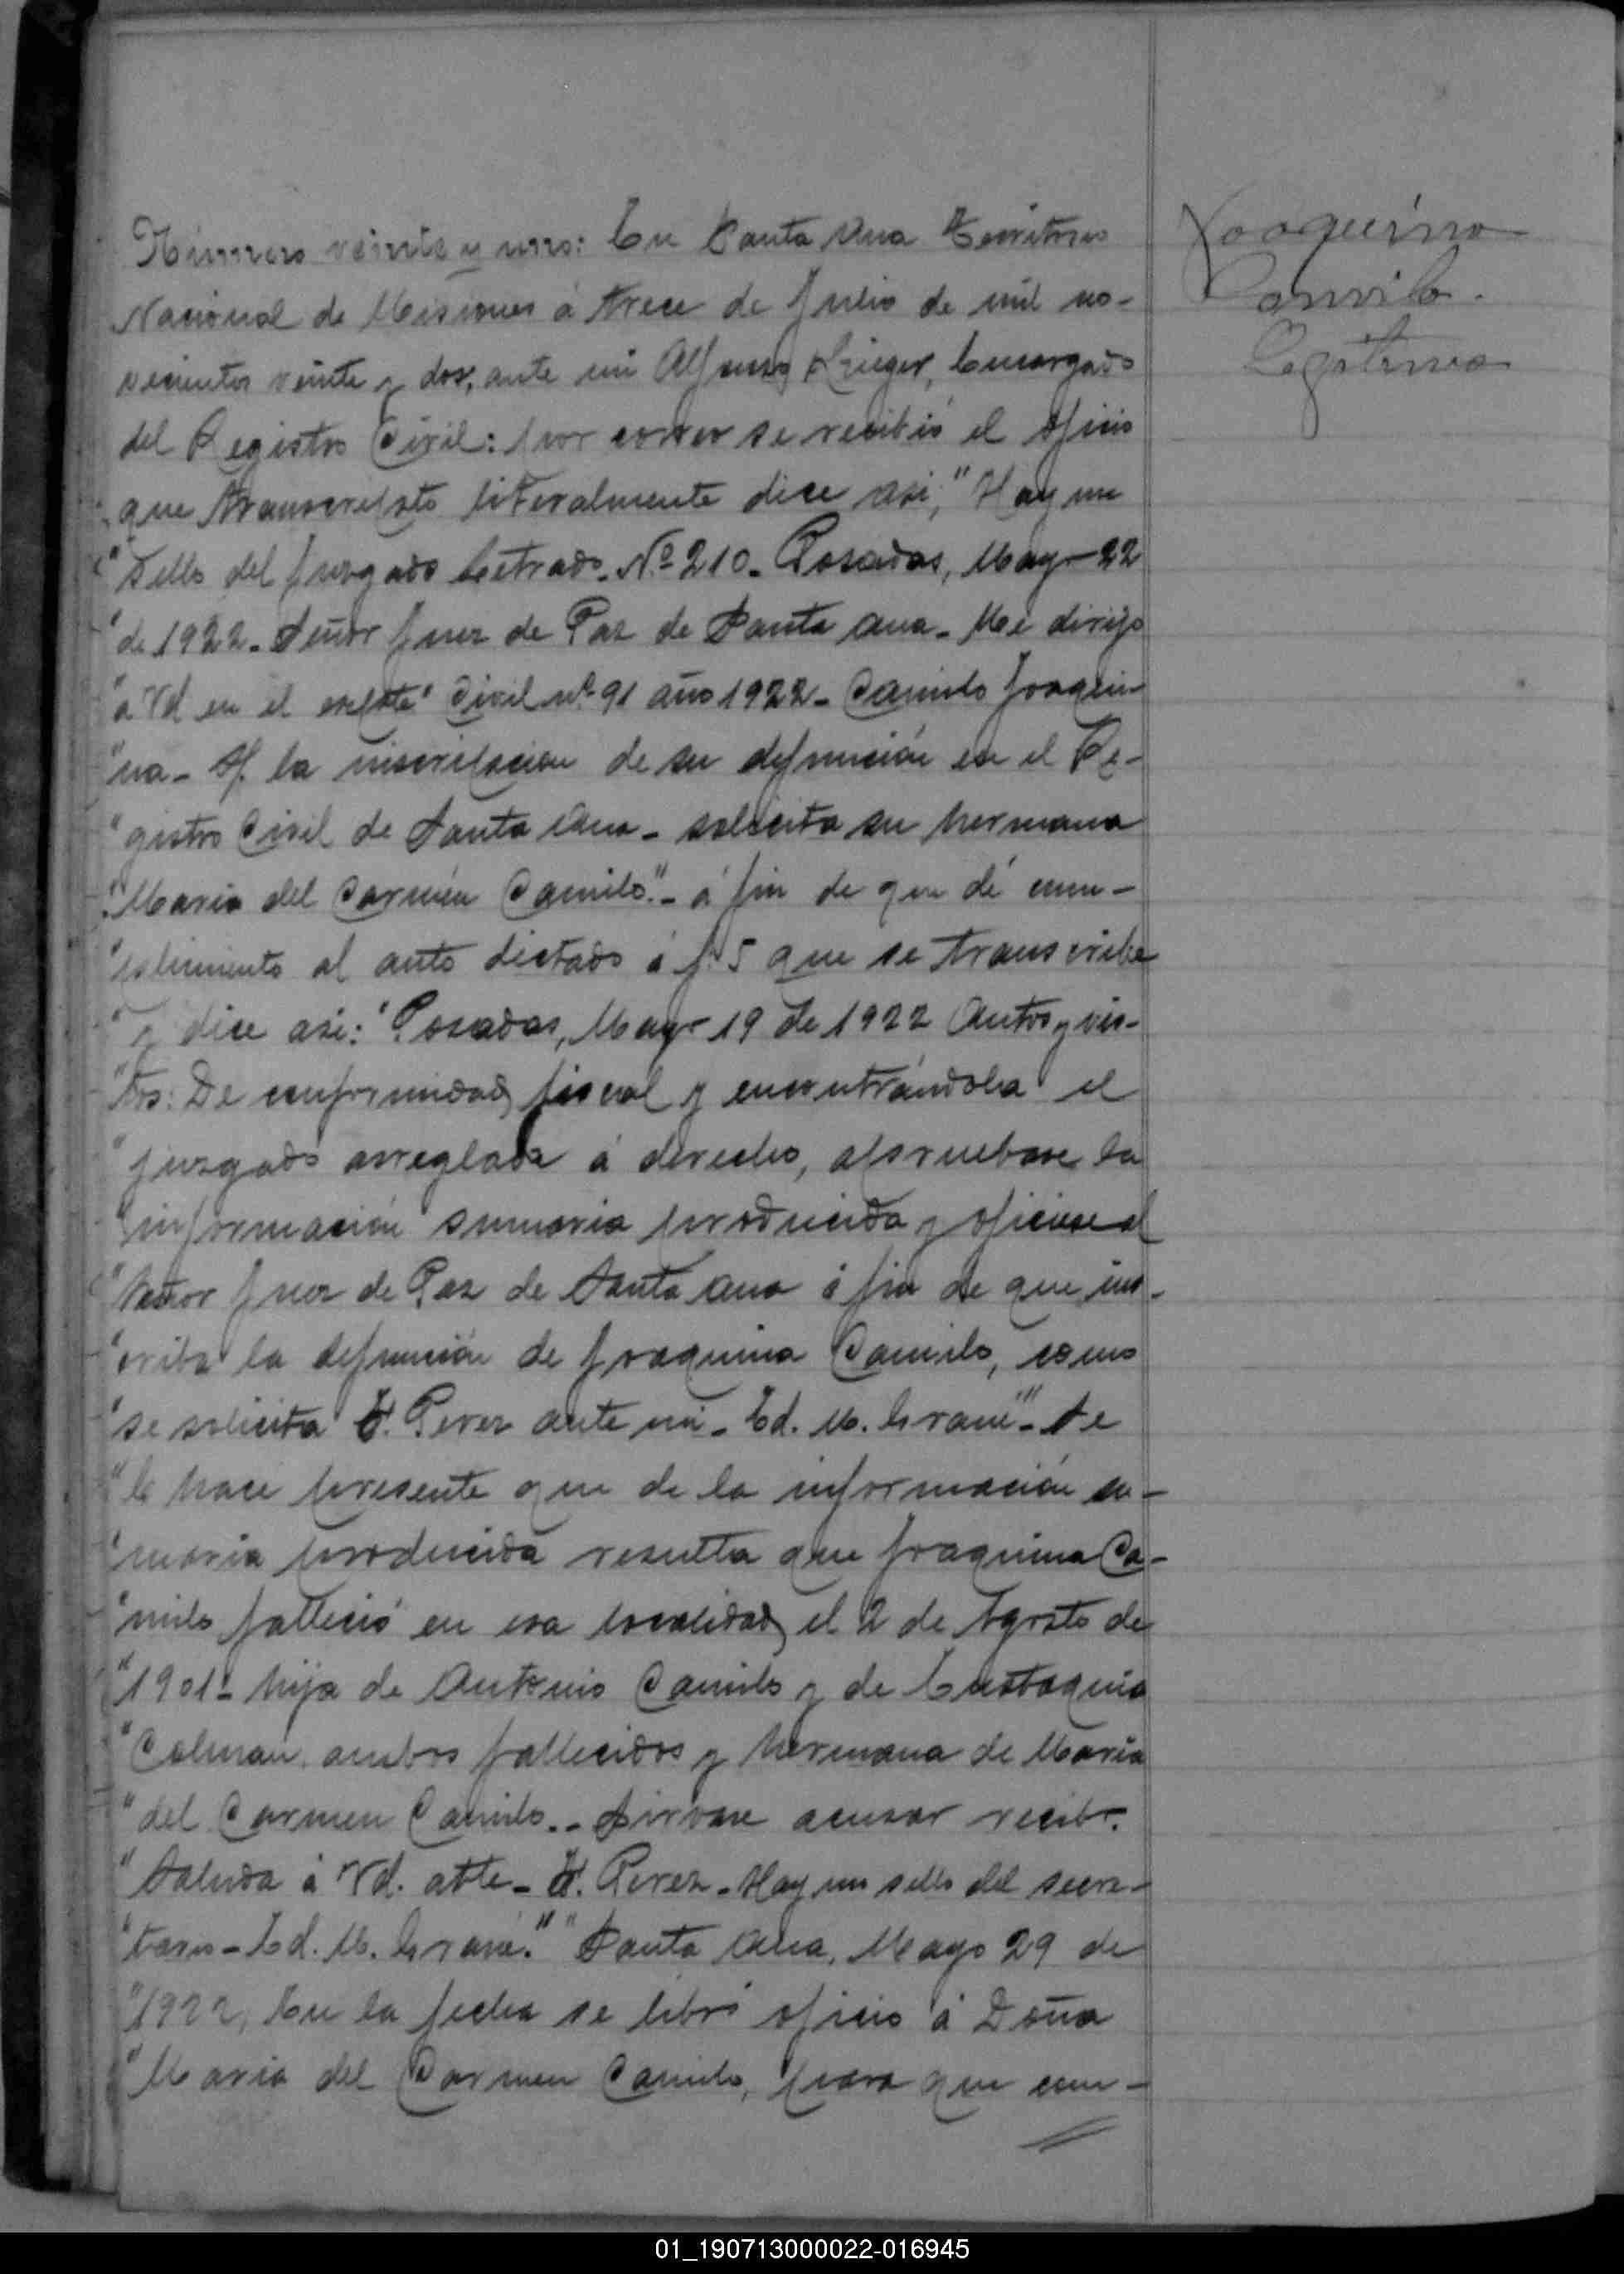 Número veinte y uno: En Santa Ana Territorio
Nacional de Misiones á trece de Julio de mil no-
vecientos veinte y dos, ante mi Alfonso Krieger, Encargado
del Registro Civil: por correo se recibió el oficio
que transcripto literalmente dice asi; "Hay un
"sello del Juzgado Letrado. Nº 210. Posadas, Mayo 22
"de 1922. Señor Juez de Paz de Santa Ana. Me dirijo
"a Vd en el expte" Civil nº 91 año 1922. Camilo Joaqui-
"na. S/. la inscripcion de su defunción en el Re-
"gistro Civil de Santa Ana - solicita su hermana
"Maria del Carmén Camilo". á fin de que dé cum-
"plimiento al auto dictado á f. 5 que se transcribe
"y dice asi: "Posadas, Mayo 19 de 1922 Autos y vis-
"tos: De conformidad fiscal y encontrándola el
"juzgado arreglada á derecho, apruebase la
"información sumaria producida y oficiese al
"señor Juez de Paz de Santa Ana á fin de que ins-
"criba la defunción de Joaquina Camilo, como
"se solicita Perez ante mi. Ed. M. - Se
"le hace presente que de la información su-
"maria producida resulta que Joaquina Ca-
"milo falleció en esa localidad el 2 de Agosto de
"1901 - hija de Antonio Camilo y de Eustaquia
"Colman, ambos fallecidos y hermana de Maria
"del Carmen Camilo.. Sirvase acusar recibo.
"Saluda á Vd. atte - Perez. Hay un sello del secre-
"tario - Ed. M. "Santa Ana, Mayo 29 de
"1922, En la fecha se libró oficio á Doña
"Maria del Carmen Camilo, para que com-
Joaquina
Camilo.
Legitima
01_190713000022-016945